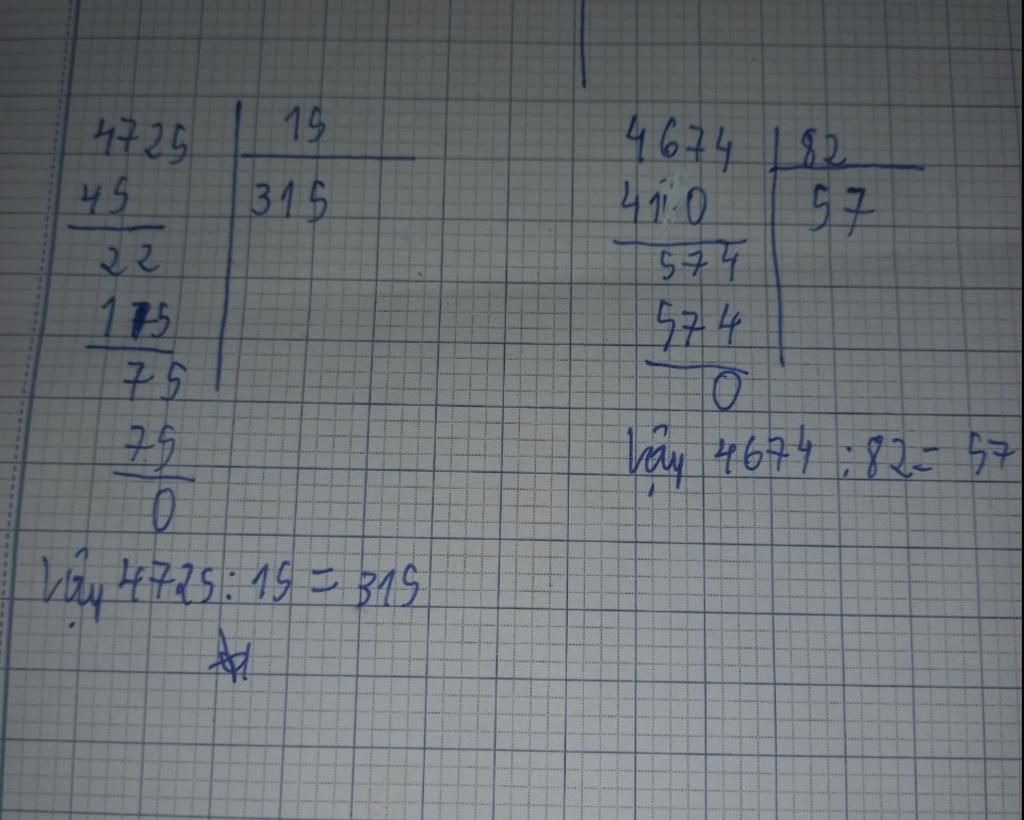 4725 15
45 315
22
15
75
75
0
Vậy 4725 : 15 = 315
4674 82
4110 57
574
574
0
Vậy 4674 : 82 = 57